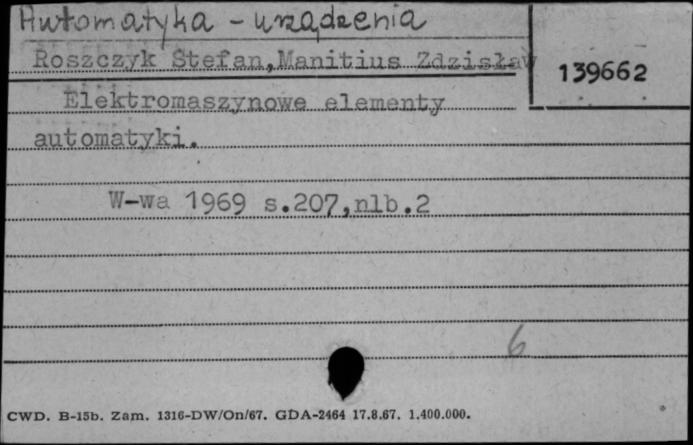 Automatyka - urządzenia
Roszczyk Stefan,Manitius Zdzisław
139662
Elektromaszynowe elementy
automatyki.
W-wa 1969 s.207,nlb.2
6
CWD. B-15b. Zam. 1316-DW/On/67. GDA-2464 17.8.67. 1.400.000.